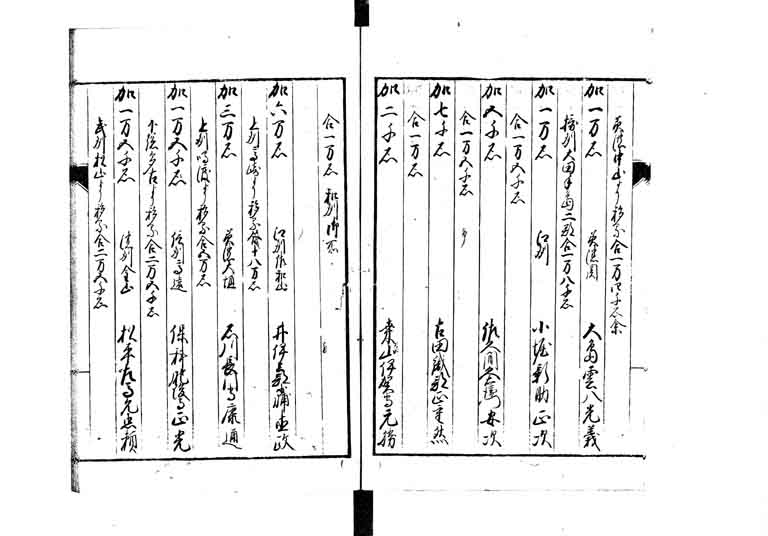 美濃中山ゟ移而合一万四千石余
加一万石 美濃関 大島雲八光義
摂州太田豊島二郡合一万八千石
加一万石 江州 小堀新助正次
合一万五千石
加五千石 佐久間久右衛門安次
合一万五千石
加七千石 古田織部正重然
合一万石
加二千石 桑山伊賀守元勝
合一万石 和州御所
加六万石 江州佐和山 井伊兵部少輔直政
上州高崎ゟ移而合十八万石
加三万石 美濃大垣 石川長門守康通
上州鳴渡ゟ移而合五万石
加一万五千石 信州高遠 保科肥後守正光
下総多古ゟ移而合二万五千石
加一万五千石 濃州金山 松平左馬允忠頼
武州松山ゟ移而合二万五千石